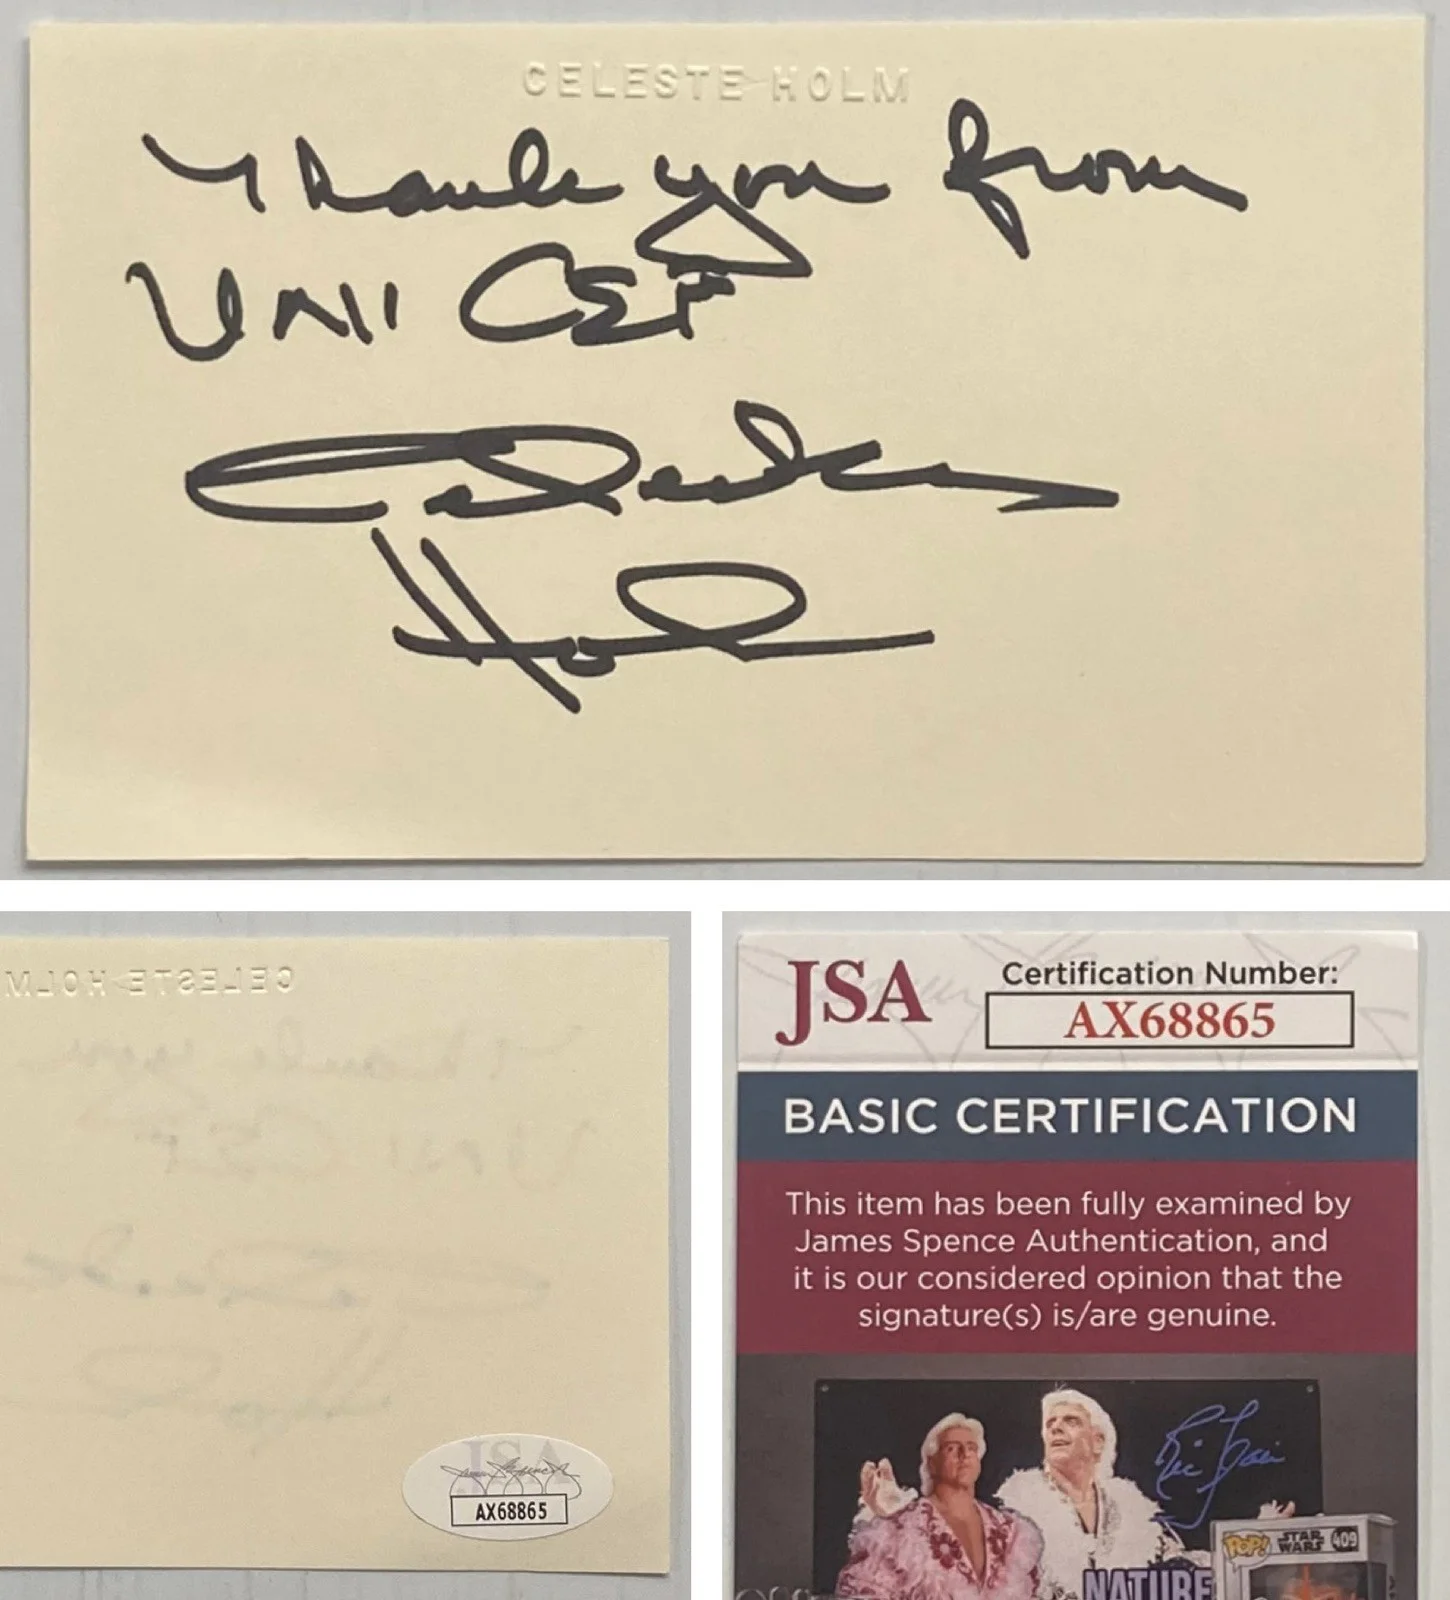 CELESTE HOLM
Thank you from
UNICEF
Celeste
Holm
CELESTE HOLM
Thank you
UNICEF
JSA
AX68865
JSA
Certification Number:
AX68865
BASIC CERTIFICATION
This item has been fully examined by
James Spence Authentication, and
it is our considered opinion that the
signature(s) is/are genuine.
Ric Flair
NATURE
POP!
STAR
WARS
409